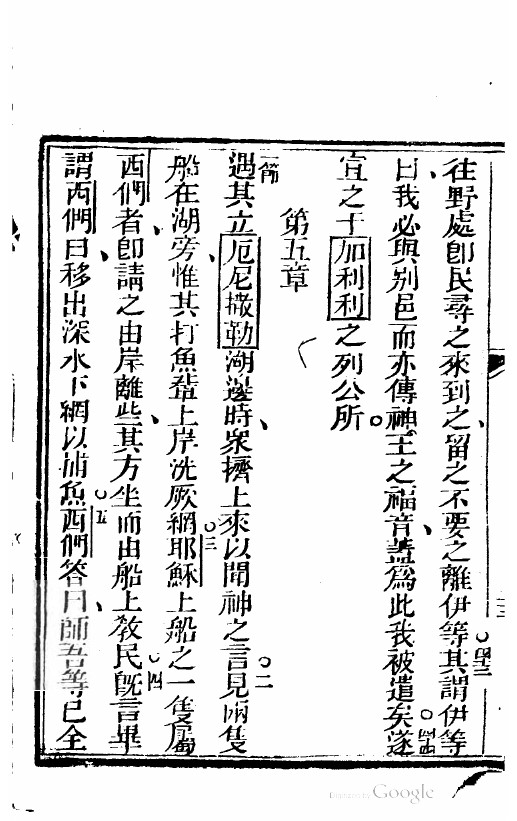 往野處卽民尋之來到之留之不要之離伊等其謂伊等
曰我必與别邑而亦傳神王之福音蓋爲此我被遣矣遂
宣之于加利利之列公所
第五章
一節遇其立厄尼撒勒湖邊時衆擠上來以聞神之言見兩隻
船在湖旁惟其打魚輩上岸洗厥網耶穌上船之一隻屬
西們者卽請之由岸離些其方坐而由船上教民旣言畢
謂西們曰移出深水下網以捕魚西們答曰師吾等已全
四三
四四
二
三
四
五
Digitized by Google